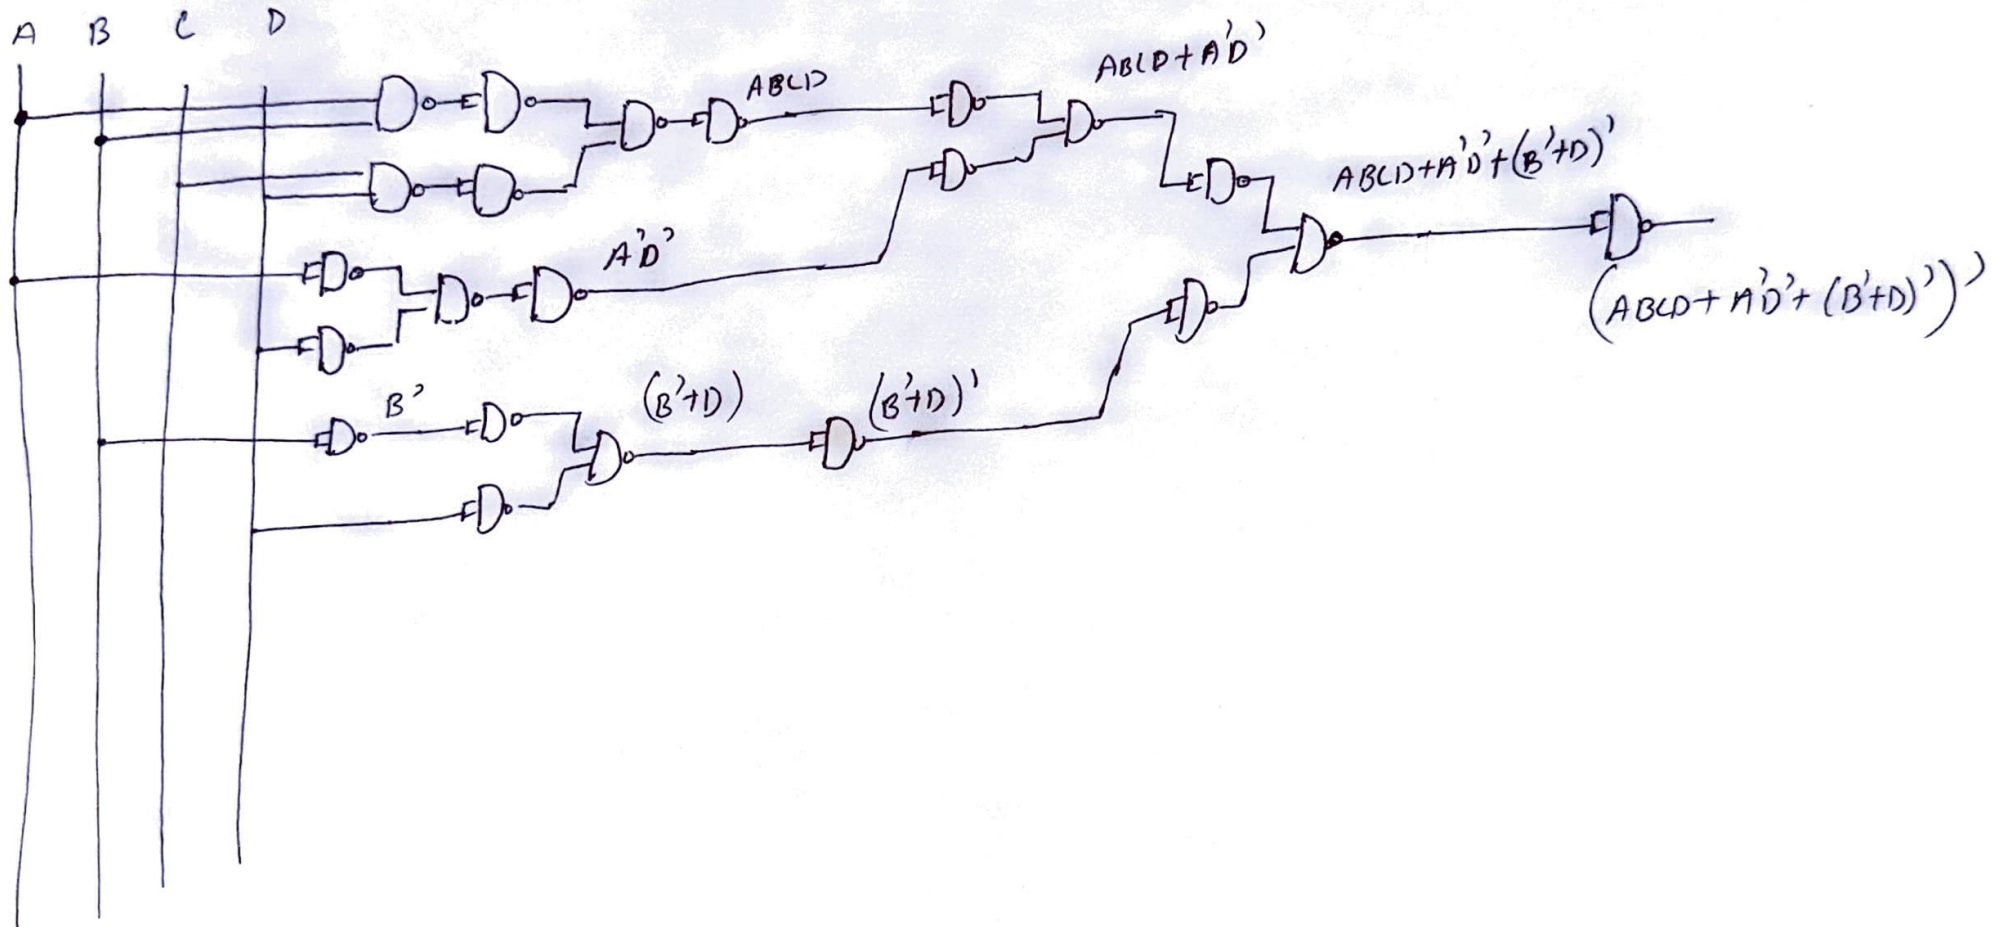 A B C D
ABCD
ABCD+A'D'
ABCD+A'D'+(B'+D)'
A'D'
(ABCD+A'D'+(B'+D)')'
B'
(B'+D)
(B'+D)'